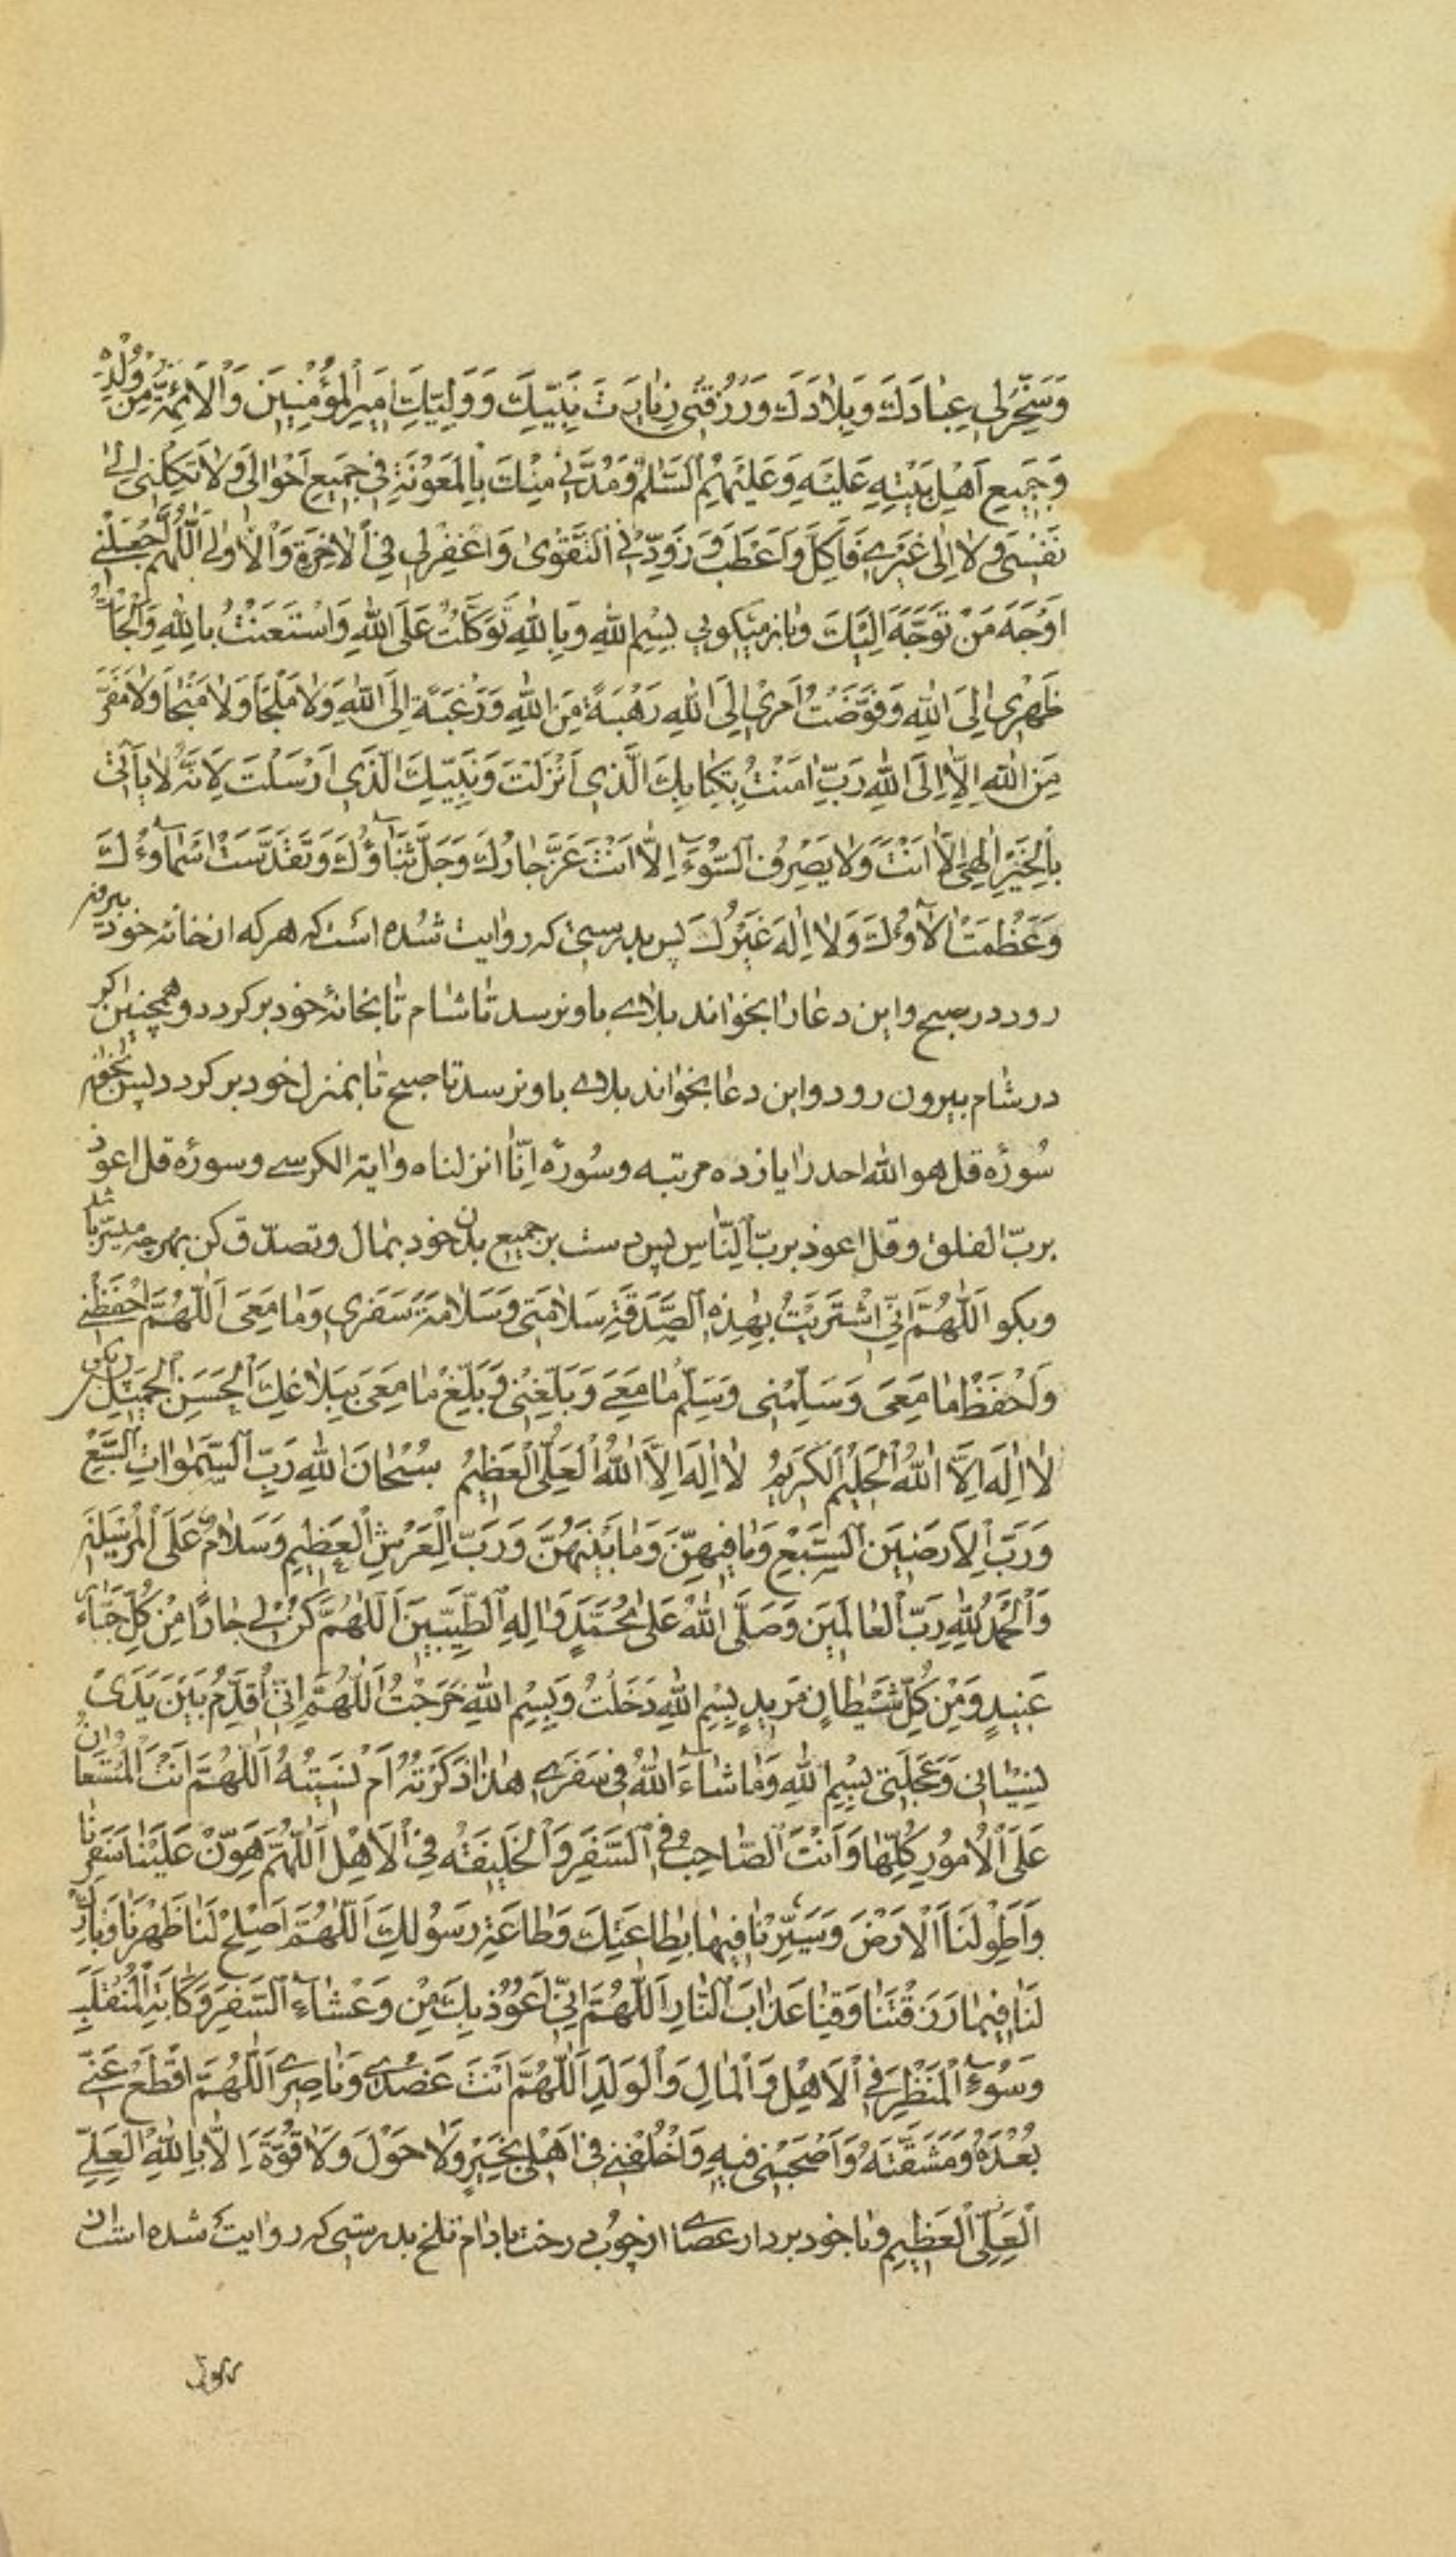 وَسَخِّرْلِی عِبٰادَكَ وَبِلاٰدَكَ وَرْزُقْنی زِیٰارَتَ نَبِیِّكَ وَوَلِیِّكَ اَمیٖرِالْمُؤْمِنیٖنَ وَالْاَئِمَّةِ مِنْ وُلْدِهِ
وَجَمیٖعِ اَهْلِ بَیْتِهِ عَلَیْهِ وَعَلَیْهِمُ السَّلٰمُ وَمُدَّنیٖ مِنْكَ بِالْمَعُوْنَةِ فیٖ جَمیٖعِ اَحْوٰالیٖ وَلاٰ تَكِلْنیٖ اِلیٰ
نَفْسیٖ وَلاٰ اِلیٰ غَیْریٖ فَاَكِلَّ وَاَعْطَبَ وَزَوِّدْنِی التَّقْویٰ وَاغْفِرْلِی فِی الْاٰخِرَةِ وَالْاُولیٰ اَللّٰهُمَّ اجْعَلْنیٖ
اَوْجَهَ مَنْ تَوَجَّهَ اِلَیْكَ وبٰازمیٖکویی بِسْمِ اللهِ وَبِاللهِ تَوَكَّلْتُ عَلَی اللهِ وَاسْتَعَنْتُ بِاللهِ وَاَلْجَاْتُ
ظَهْریٖ اِلَی اللهِ وَفَوَّضْتُ اَمْریٖ اِلَی اللهِ رَهْبَةً مِنَ اللهِ وَرَغْبَةً اِلَی اللهِ وَلاٰ مَلْجَأَ وَلاٰ مَنْجٰا وَلاٰ مَفَرَّ
مِنَ اللهِ اِلّاٰ اِلَی اللهِ رَبِّ اٰمَنْتُ بِكِتٰابِكَ الَّذیٖ اَنْزَلْتَ وَنَبِیِّكَ الَّذیٖ اَرْسَلْتَ لِاَنَّهُ لاٰ یَأْتیٖ
بِالْخَیْرِ اِلٰهیٖ اِلّاٰ اَنْتَ وَلاٰ یَصْرِفُ السُّوٓءَ اِلّاٰ اَنْتَ عَزَّ جٰارُكَ وَجَلَّ ثَنٰآؤُكَ وَتَقَدَّسَتْ اَسْمٰآؤُكَ
وَعَظُمَتْ اٰلٰآؤُكَ وَلاٰ اِلٰهَ غَیْرُكَ پس بدرستی که روایت شده است که هرکه از خانه خود بیرون
رود در صبح واین دعارا بخواند بلاے باو نرسد تا شام تا بخانۀ خود برکردد وهمچنین اکر
در شام بیرون رود واین دعا بخواند بلاے باو نرسد تا صبح تا بمنزل خود برکردد پس بخوان
سُورۀ قل هو الله احد را یازده مرتبه وسُورۀ اِنّا انزلناه وایة الکرسے وسورۀ قل اعوذ
بربّ الفلق وقل اعوذ بربّ النّاس پس دست بر جمیع بدن خود بمال وتصدّق کن بهرچه میسّر باشد
وبکو اَللّٰهُمَّ اِنّیٖ اشْتَرَیْتُ بِهٰذِهِ الصَّدَقَةِ سَلاٰمَتیٖ وَسَلاٰمَةَ سَفَریٖ وَمٰا مَعیٖ اَللّٰهُمَّ احْفَظْنیٖ
وَاحْفَظْ مٰا مَعیٖ وَسَلِّمْنیٖ وَسَلِّمْ مٰا مَعیٖ وَبَلِّغْنیٖ وَبَلِّغْ مٰا مَعیٖ بِبَلاٰغِكَ الْحَسَنِ الْجَمیٖلِ بکو
لاٰ اِلٰهَ اِلَّا اللهُ الْحَلیٖمُ الْكَریٖمُ لاٰ اِلٰهَ اِلَّا اللهُ الْعَلِیُّ الْعَظیٖمُ سُبْحٰانَ اللهِ رَبِّ السَّمٰوٰاتِ السَّبْعِ
وَرَبِّ الْاَرَضیٖنَ السَّبْعِ وَمٰا فیٖهِنَّ وَمٰا بَیْنَهُنَّ وَرَبِّ الْعَرْشِ الْعَظیٖمِ وَسَلاٰمٌ عَلَی الْمُرْسَلیٖنَ
وَالْحَمْدُ لِلّٰهِ رَبِّ الْعٰالَمیٖنَ وَصَلَّی اللهُ عَلیٰ مُحَمَّدٍ وَاٰلِهِ الطَّیِّبیٖنَ اَللّٰهُمَّ كُنْ لیٖ جٰارًا مِنْ كُلِّ جَبّٰارٍ
عَنیٖدٍ وَمِنْ كُلِّ شَیْطٰانٍ مَریٖدٍ بِسْمِ اللهِ دَخَلْتُ وَبِسْمِ اللهِ خَرَجْتُ اَللّٰهُمَّ اِنّیٖ اُقَدِّمُ بَیْنَ یَدَیْ
نِسْیٰانیٖ وَعَجَلَتیٖ بِسْمِ اللهِ وَمٰا شٰآءَ اللهُ فیٖ سَفَریٖ هٰذٰا ذَكَرْتُهُ اَمْ نَسیٖتُهُ اَللّٰهُمَّ اَنْتَ الْمُسْتَعٰانُ
عَلَی الْاُمُورِ كُلِّهٰا وَاَنْتَ الصّٰاحِبُ فِی السَّفَرِ وَالْخَلیٖفَةُ فِی الْاَهْلِ اَللّٰهُمَّ هَوِّنْ عَلَیْنٰا سَفَرَنٰا
وَاَطْوِ لَنَا الْاَرْضَ وَسَیِّرْنٰا فیٖهٰا بِطٰاعَتِكَ وَطٰاعَةِ رَسُولِكَ اَللّٰهُمَّ اَصْلِحْ لَنٰا ظَهْرَنٰا وَبٰارِكْ
لَنٰا فیٖمٰا رَزَقْتَنٰا وَقِنٰا عَذٰابَ النّٰارِ اَللّٰهُمَّ اِنّیٖ اَعُوُذُ بِكَ مِنْ وَعْشٰآءِ السَّفَرِ وَكَاٰبَةِ الْمُنْقَلَبِ
وَسُوٓءِ الْمَنْظَرِ فِی الْاَهْلِ وَالْمٰالِ وَالْوَلَدِ اَللّٰهُمَّ اَنْتَ عَضُدیٖ وَنٰاصِریٖ اَللّٰهُمَّ اقْطَعْ عَنّیٖ
بُعْدَهُ وَمَشَقَّتَهُ وَاَصْحَبْنیٖ فیٖهِ وَاَخْلُفْنیٖ فیٖ اَهْلیٖ بِخَیْرٍ وَلاٰ حَوْلَ وَلاٰ قُوَّةَ اِلّاٰ بِاللهِ الْعَلِیِّ
الْعَلِیِّ الْعَظیٖمِ وبا خود بردار عصاے از چوب درخت بادام تلخ بدرستی که روایت شده است از